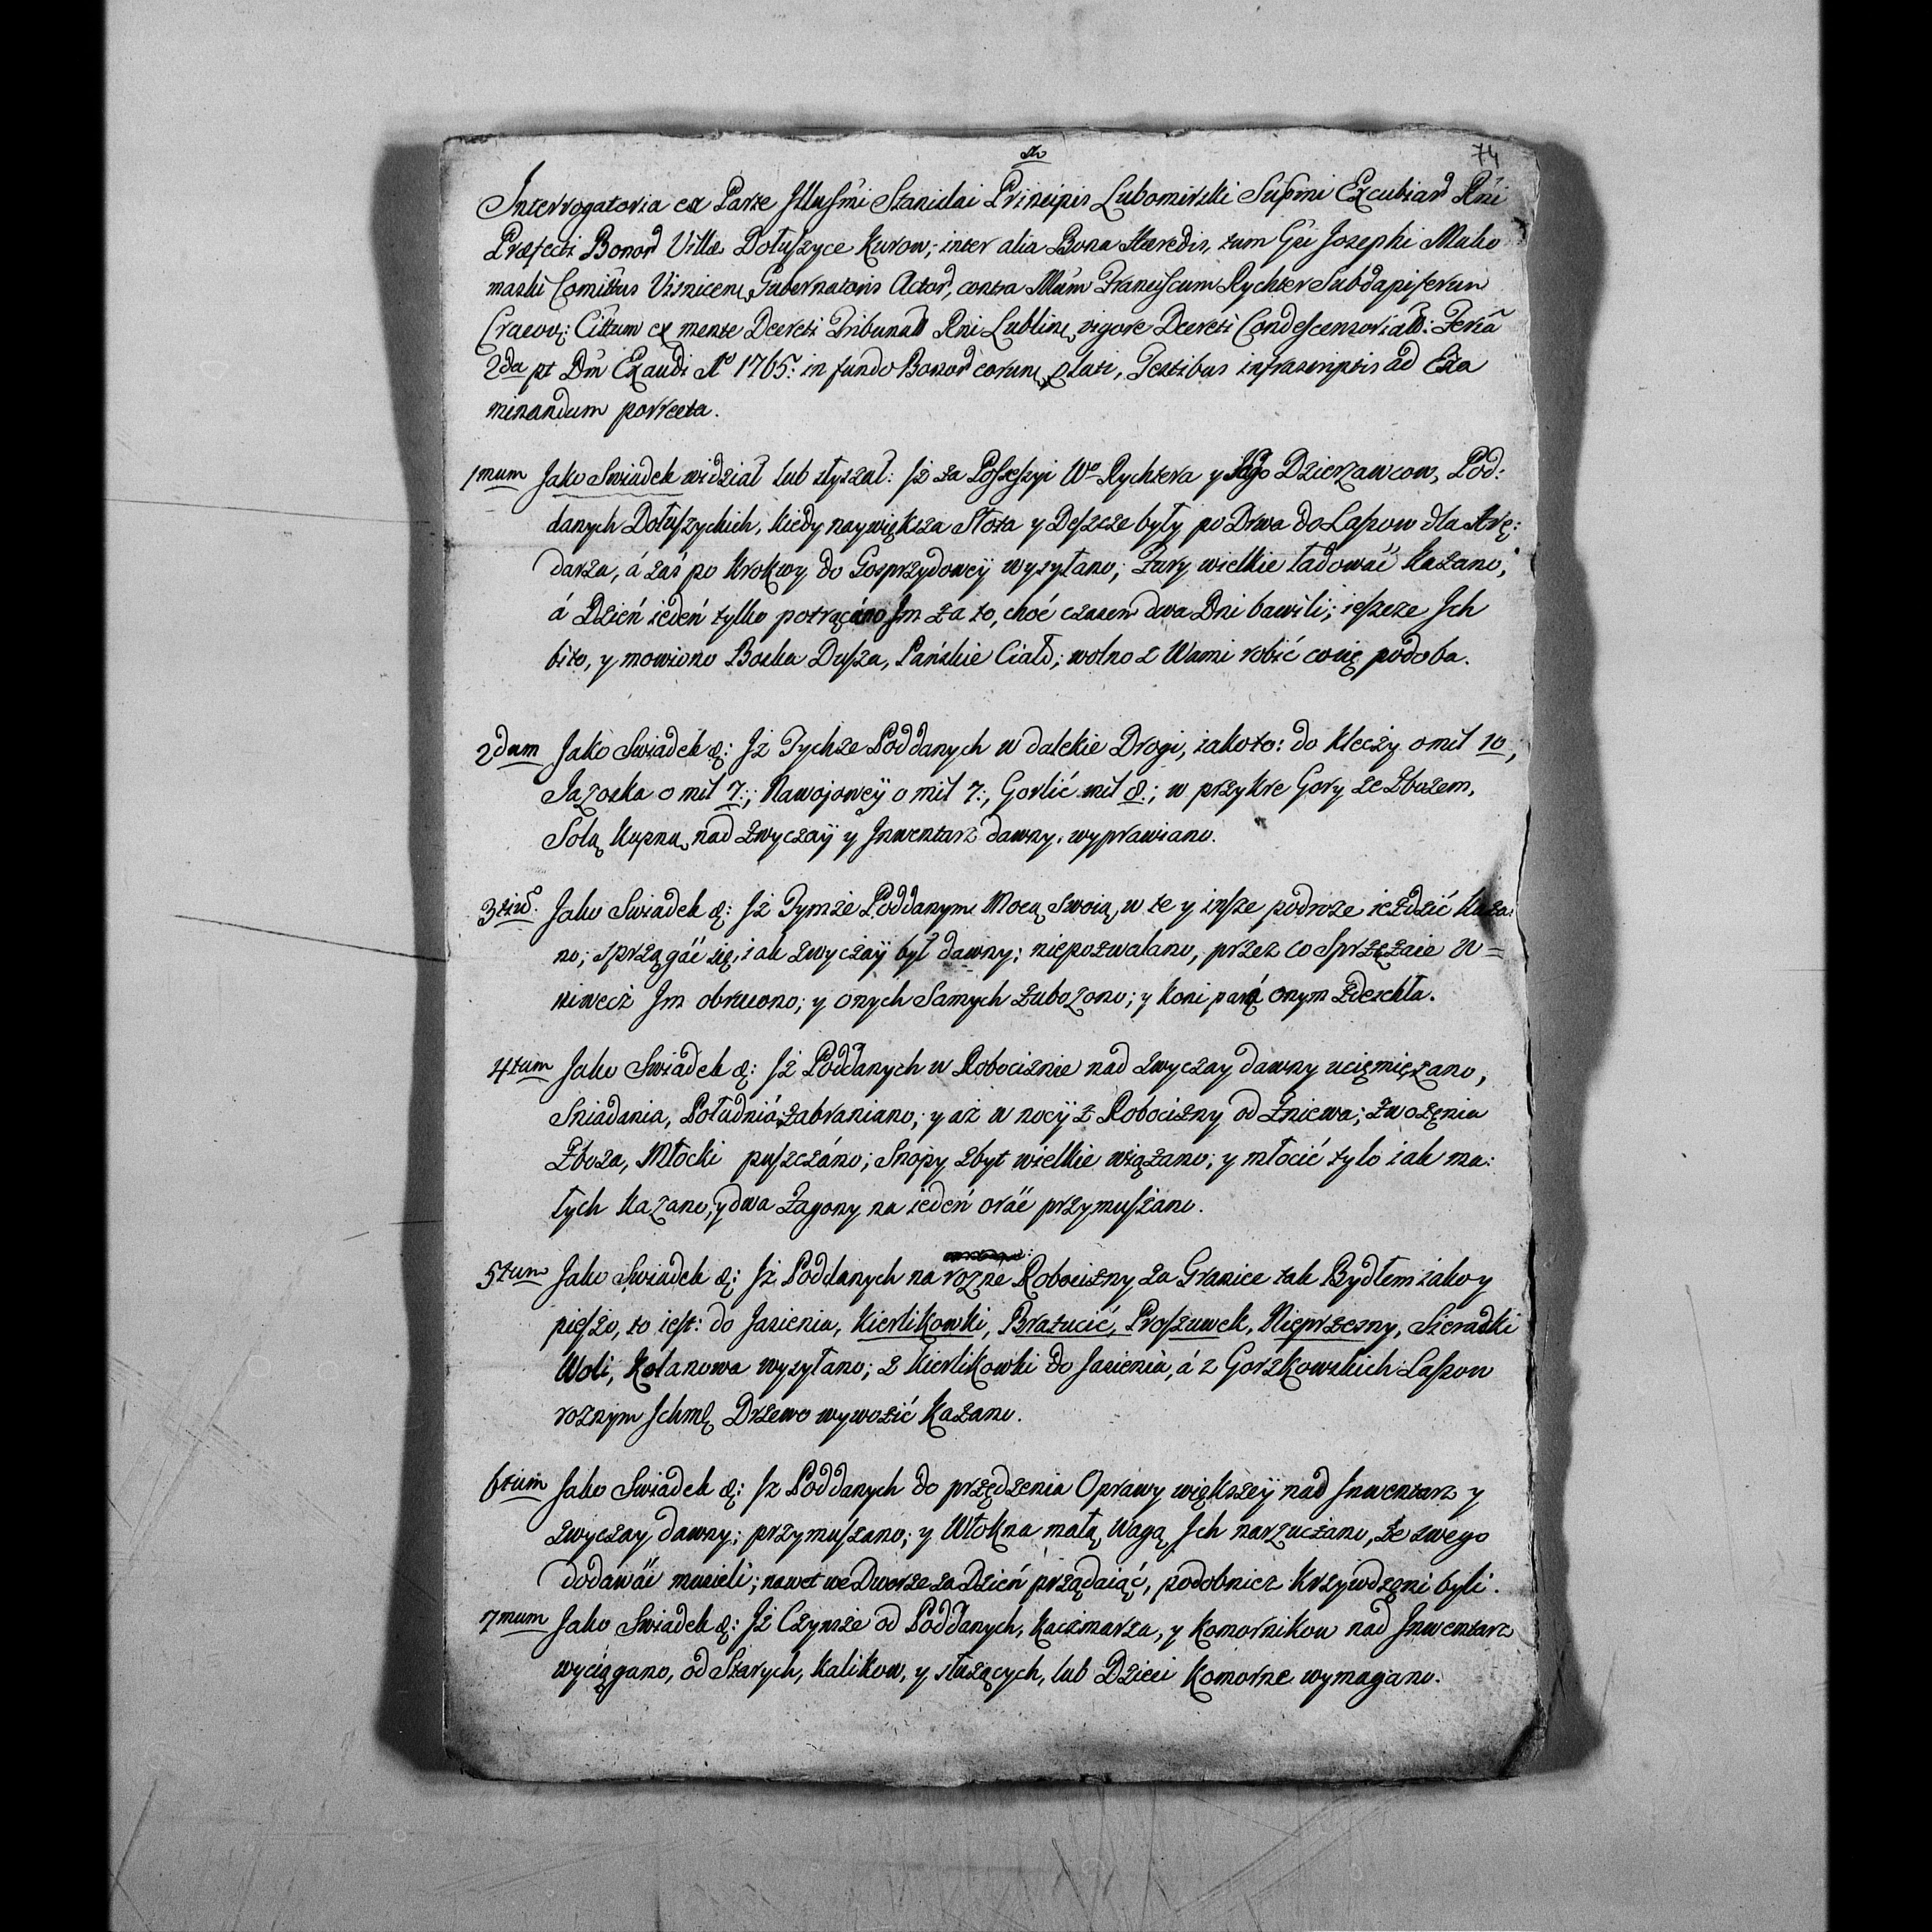 74
Interrogatoria ex Parte Illusmi Stanislai Principis Lubomirski Supmi Excubiar Rni
Præfecti Bonor Villæ Dołuszyce Kurow; inter alia Bona Hæredis, tum Gsi Josephi Maho
maski Comittus Visnicen, Gubernatoris Actor, contra Mum Franciscum Rychter Subdapiferum
Craeov: Cittum ex mente Decreti Tribunall Rni Lublin, vigore Decreti Condescensorialis: Feria
2da pt Dm Exaudi Ao 1765: in fundo Bonor eorum plati, Testibus infrascriptis ad Exa
minandum porrecta.
1mum Jako Swiadek widział lub słyszał: Jż za Possessyi Wo Rychtera y Jego Dzierzawcow, Pod:
danych Dołuszyckich, kiedy naywiększa Słota y Deszcze były po Drwa do Lassow dla Arę:
darza, á zaś po Krokwy do Gosprzydowcÿ wysyłano; Fury wielkie ładowáć kazano,
á Dzień ieden tylko potrącáno Jm za to, choć czasem dwa Dni bawili; ieszcze Jch
bito, y mowiono Boska Dusza, Pańskie Ciało; wolno z Wami robić co się podoba.
2dum Jako Swiadek &: Jż Tychże Poddanych w dalekie Drogi, iako to: do Kleczy o mil 10,
Jazoska o mil 7:, Nawojowcÿ o mil 7:, Gorlić mil 8:; w przykre Gory ze Zbożem,
Solą Kupną, nad zwyczaÿ y Jnwentarz dawny, wyprawiano.
3tiu. Jako Swiadek &: Jż Tymże Poddanym Mocą Swoią, w te y insze podroze ieździć Kaza:
no; sprzągáć się, iak zwyczaÿ był dawny; niepozwalano, przez co Sprzężaie w =
niwecż Jm obrucono; y onych Samych zubożono; y koni parę onym zdechła.
4tum Jako Swiadek &: Jż Poddanych w Robociznie nad zwyczay dawny uciemięzano,
Sniadania, Południá, zabraniano; y aż w nocÿ z Robocizny od Żniewa; zwożenia
Zboża, Młocki puszczáno; Snopy zbyt wielkie wiązano; y młocić tylo iak ma:
łych kazano, y dwa Zagony na ieden oráć przymuszano.
5tum Jako Swiadek &: Jż Poddanych na rozne Robocizny za Granice tak Bydłem iako y
pieszo, to iest: do Jasienia, Kierlikowki, Bratucić, Proszuwek, Nieprzesny, Sieradki
Woli, Kolanowa wysyłano; z Kierlikowki do Jasienia, á z Gorzkowskich Lassow
roznym Ichmć Drzewo wywozić kazano.
6tum Jako Swiadek &: Jż Poddanych do przędzenia Oprawy większeÿ nad Jnwentarz y
zwyczay dawny; przymuszano; y Włokna małą Wagą Jch narzucano, że swego
dodawáć musieli; nawet we Dworze za Dzień prządaiąć, podobnież krzywdzeni byli.
7mum Jako Swiadek &: Jż Czynsze od Poddanych, Karczmarza, y Komornikow nad Jnwentarz
wyciągano, od Starych, Kalikow, y słuzących, lub Dzieci Komorne wymagano.